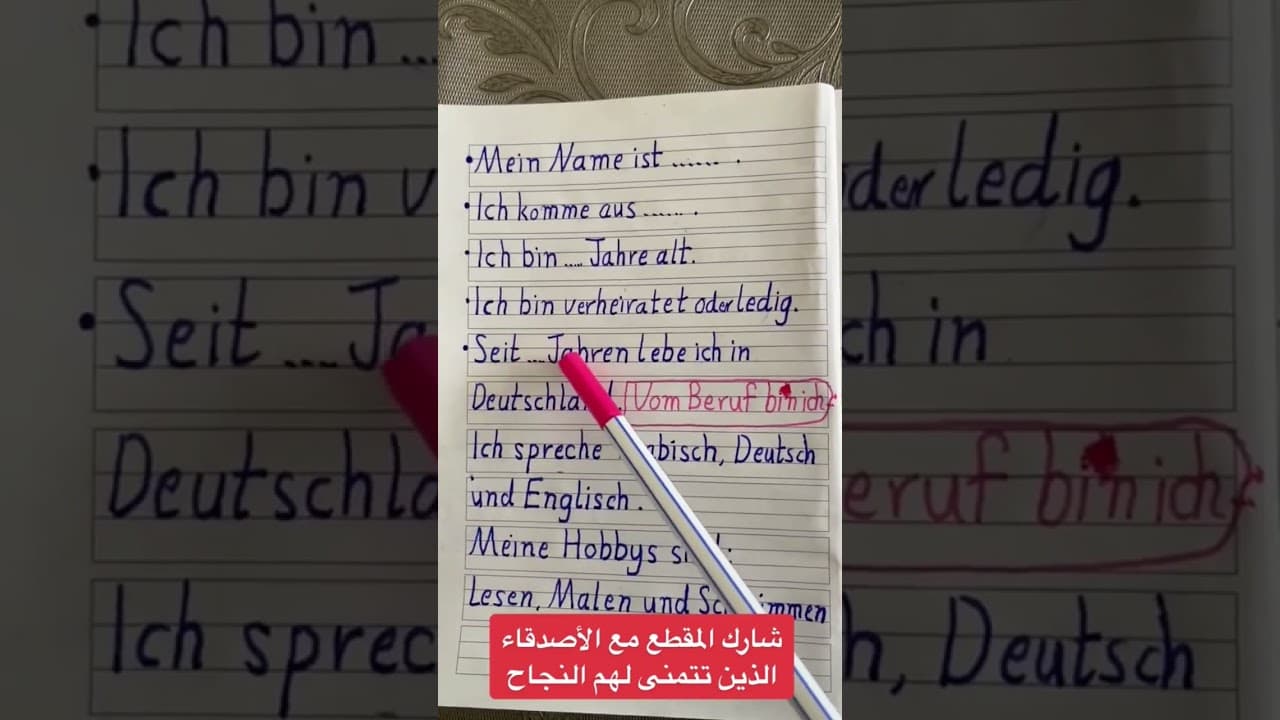 •Mein Name ist ...... .
•Ich komme aus ...... .
•Ich bin .... Jahre alt.
•Ich bin verheiratet oder ledig.
•Seit ....Jahren Lebe ich in
Deutschla. (Vom Beruf bin ich
Ich spreche bisch, Deutsch
und Englisch.
Meine Hobbys :
Lesen, Malen und
شارك المقطع مع الأصدقاء
الذين تتمنى لهم النجاح